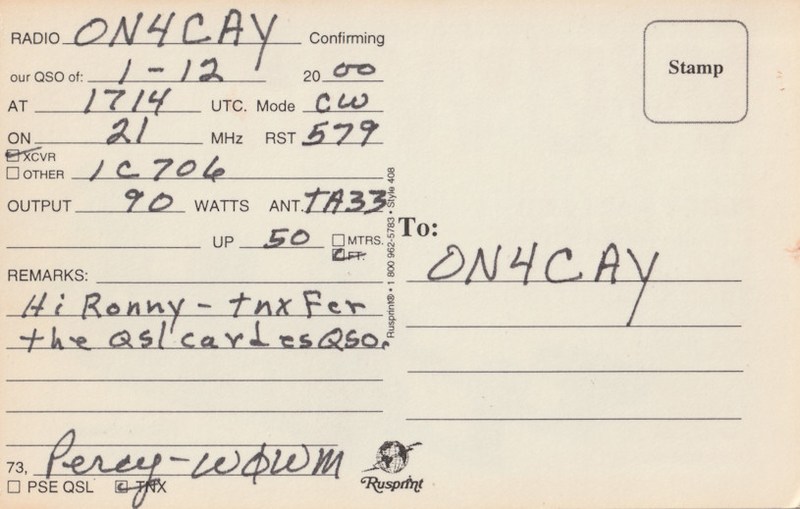 RADIO ON4CAY Confirming
our QSO of: 1-12 2000
AT 1714 UTC. Mode CW
ON 21 MHz RST 579
XCVR
OTHER IC706
OUTPUT 90 WATTS ANT. TA33
UP 50 MTRS.
FT.
REMARKS:
Hi Ronny - tnx Fer
the QSL card es QSO.
73, Percy - WØWM
PSE QSL TNX
Rusprint
Rusprint® • 1 800 962-5783 • Style 408
Stamp
To:
ON4CAY